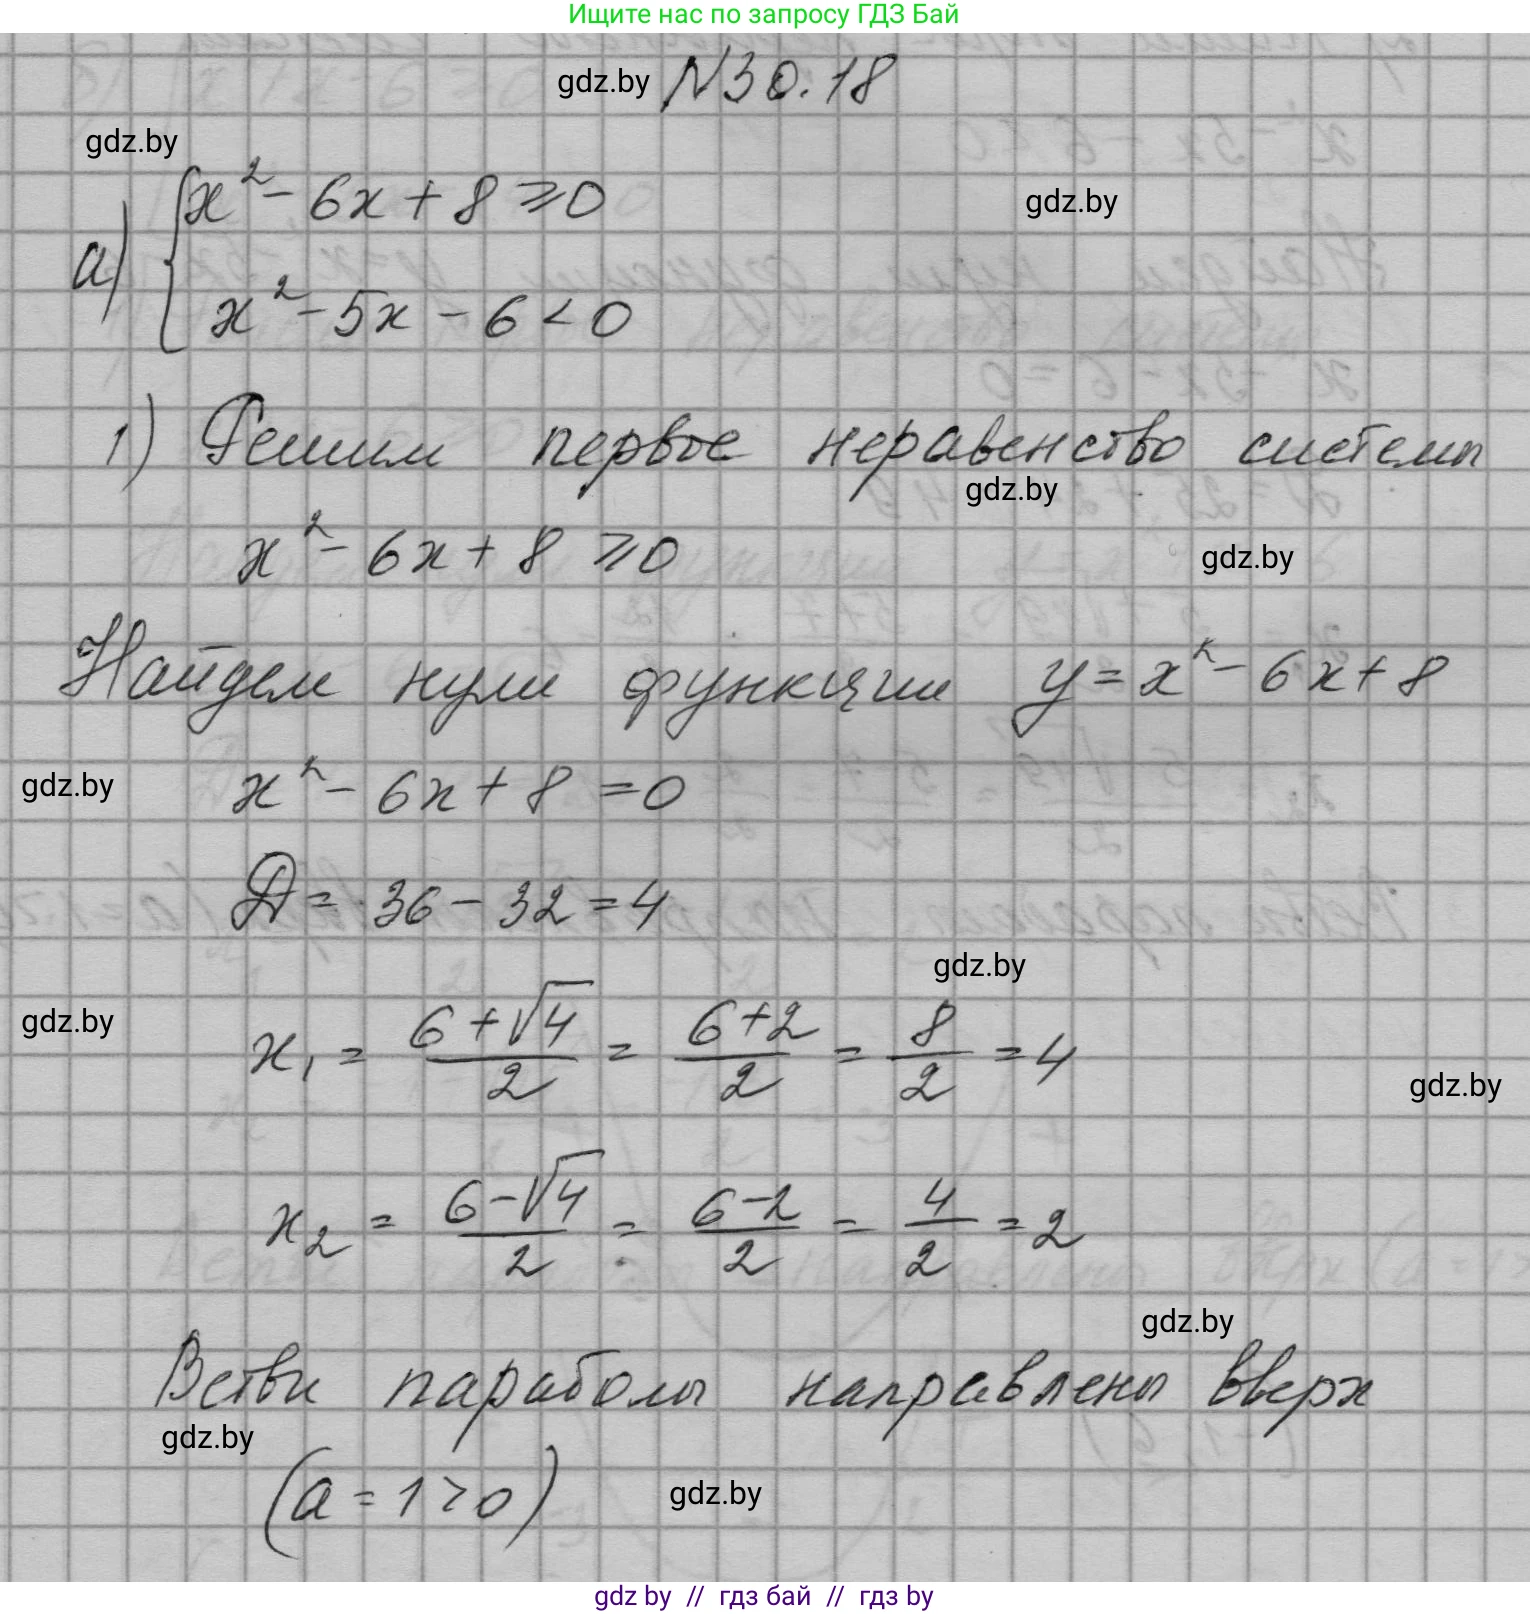 Ищите нас по запросу ГДЗ Бай
gdz.by N30.18
gdz.by
а) { x² - 6x + 8 ⩾ 0
gdz.by
x² - 5x - 6 < 0
1) Решим первое неравенство системы
gdz.by
x² - 6x + 8 ⩾ 0
gdz.by
Найдем нули функции y = x² - 6x + 8
gdz.by
x² - 6x + 8 = 0
Д = 36 - 32 = 4
gdz.by
gdz.by
x₁ = (6 + √4)/2 = (6 + 2)/2 = 8/2 = 4
gdz.by
x₂ = (6 - √4)/2 = (6 - 2)/2 = 4/2 = 2
gdz.by
Ветви параболы направлены вверх
gdz.by
(a = 1 > 0)
gdz.by
gdz by // гдз бай // гдз by